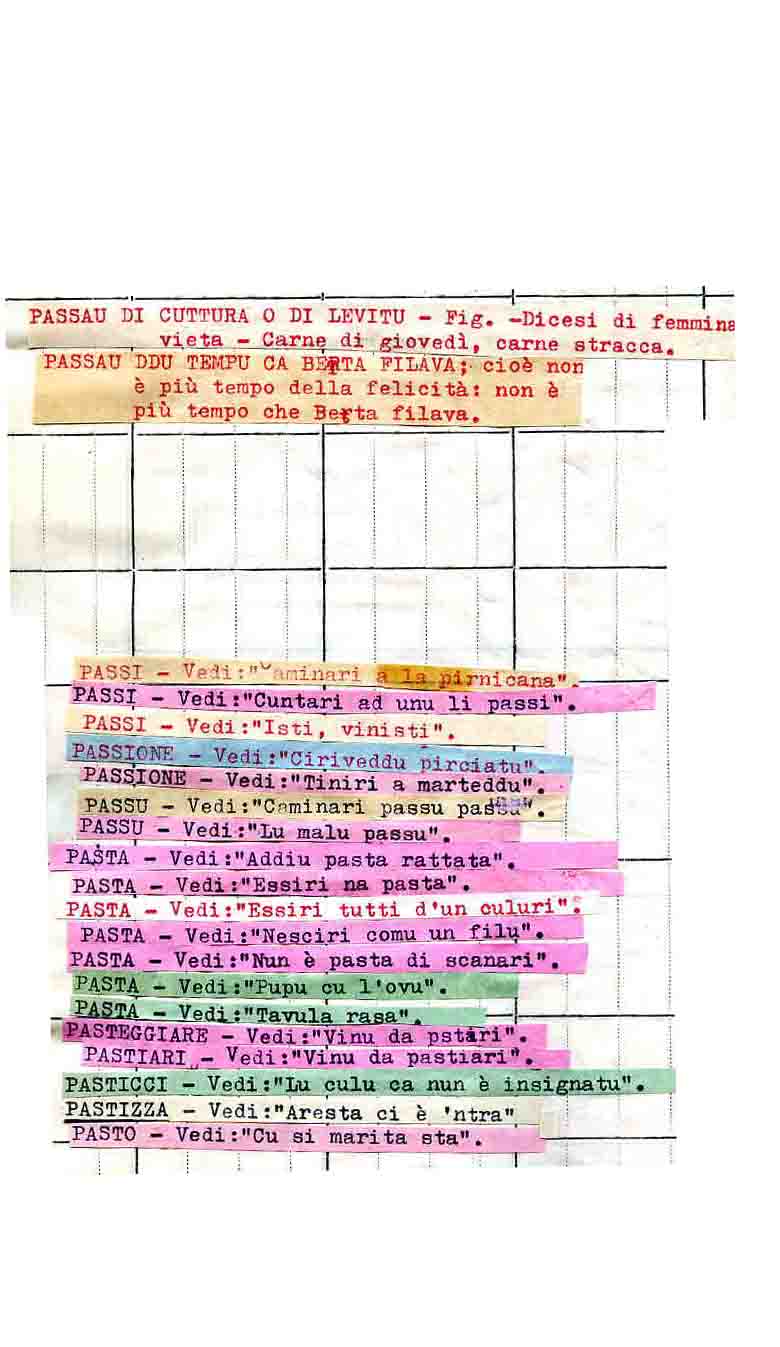 PASSAU DI CUTTURA O DI LEVITU - Fig. -Dicesi di femmina
vieta - Carne di giovedì, carne stracca.
PASSAU DDU TEMPU CA BERTA FILAVA; cioè non
è più tempo della felicità: non è
più tempo che Berta filava.
PASSI - Vedi:"Caminari a la pirnicana".
PASSI - Vedi:"Cuntari ad unu li passi".
PASSI - Vedi:"Isti, vinisti".
PASSIONE - Vedi:"Ciriveddu pirciatu".
PASSIONE - Vedi:"Tiniri a marteddu".
PASSU - Vedi:"Caminari passu passu".
PASSU - Vedi:"Lu malu passu".
PASTA - Vedi:"Addiu pasta rattata".
PASTA - Vedi:"Essiri na pasta".
PASTA - Vedi:"Essiri tutti d'un culuri".
PASTA - Vedi:"Nesciri comu un filu".
PASTA - Vedi:"Nun è pasta di scanari".
PASTA - Vedi:"Pupu cu l'ovu".
PASTA - Vedi:"Tavula rasa".
PASTEGGIARE - Vedi:"Vinu da pstari".
PASTIARI - Vedi:"Vinu da pastiari".
PASTICCI - Vedi:"Lu culu ca nun è insignatu".
PASTIZZA - Vedi:"Aresta ci è 'ntra"
PASTO - Vedi:"Cu si marita sta".